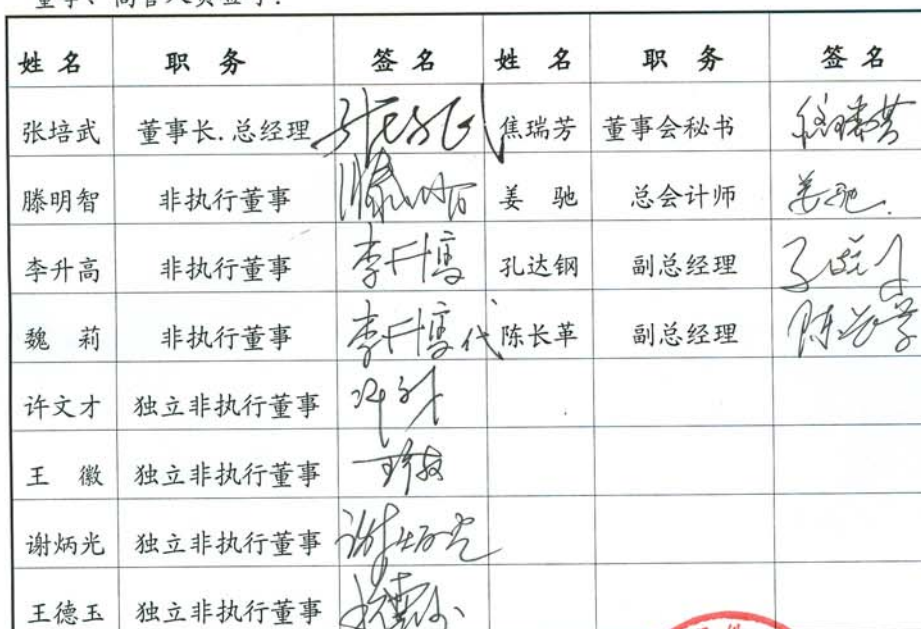 董事、高管人员签字:
姓 名 职 务 签 名 姓 名 职 务 签 名
张培武 董事长.总经理 焦瑞芳 董事会秘书
滕明智 非执行董事 姜 驰 总会计师 姜驰.
李升高 非执行董事 李升高 孔达钢 副总经理
魏 莉 非执行董事 李升高代 陈长革 副总经理
许文才 独立非执行董事
王 徽 独立非执行董事
谢炳光 独立非执行董事 谢炳光
王德玉 独立非执行董事